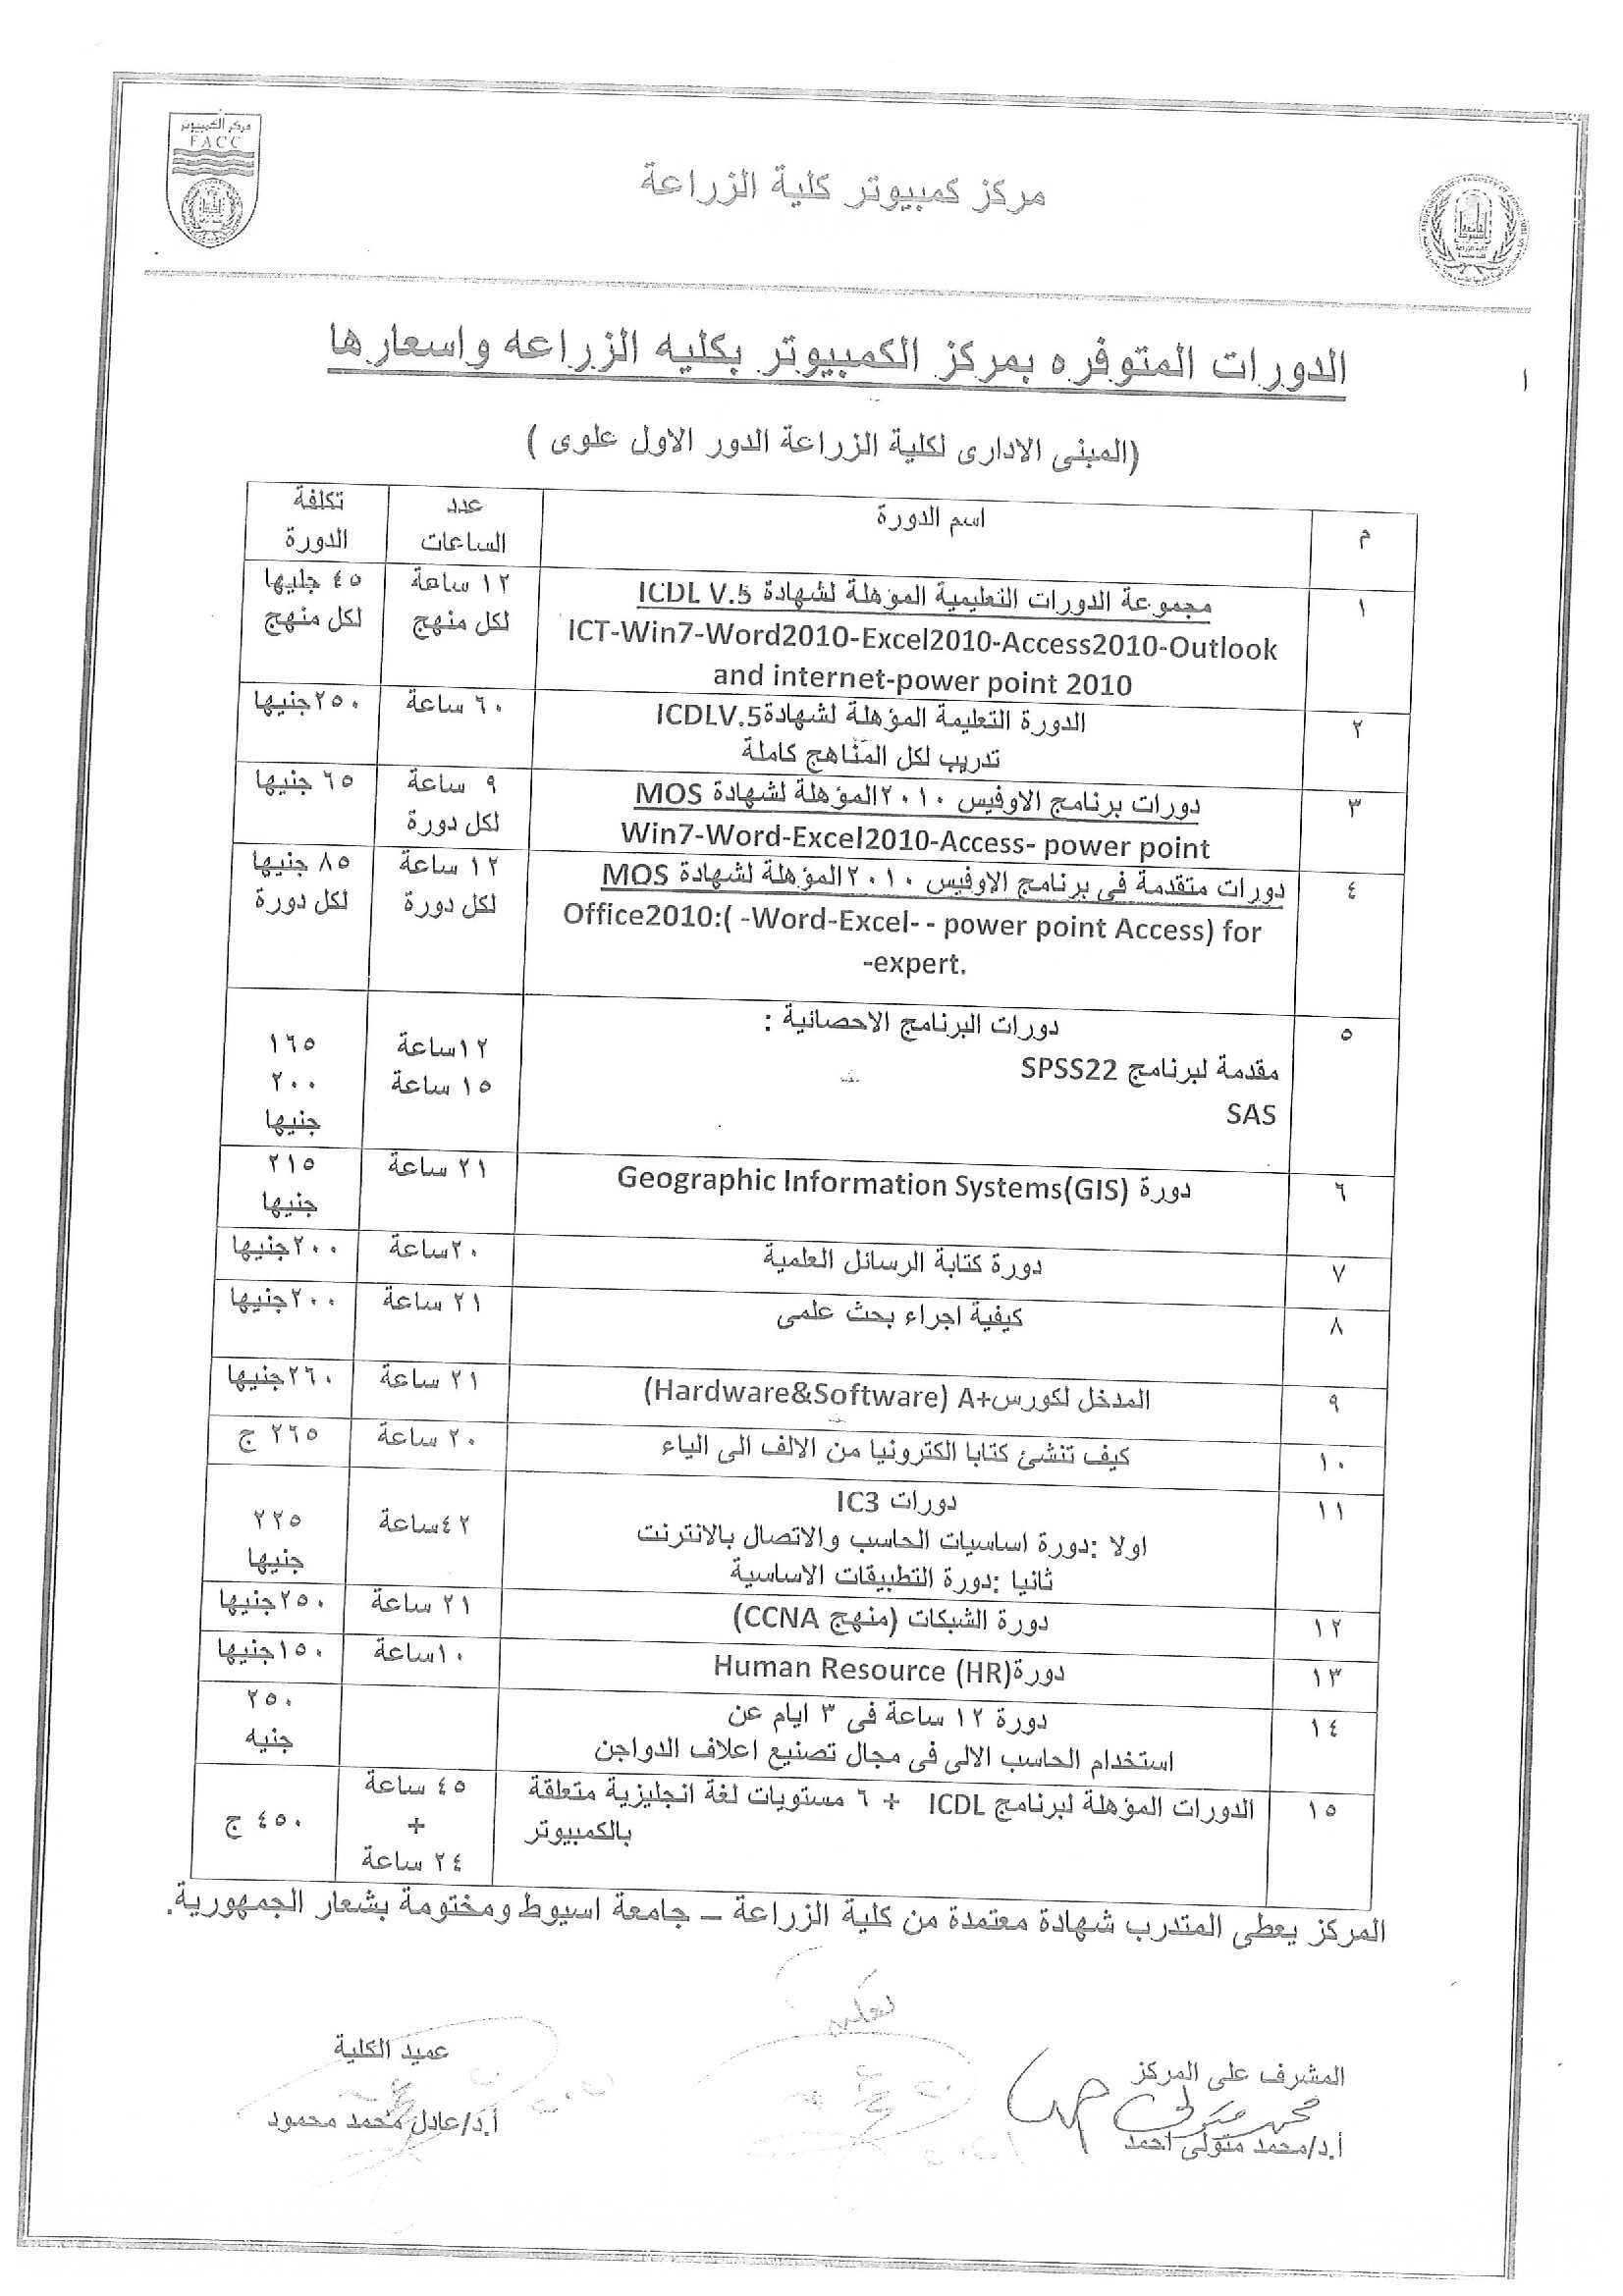 مركز الكمبيوتر
FACC
مركز كمبيوتر كلية الزراعة
الدورات المتوفره بمركز الكمبيوتر بكليه الزراعه واسعارها
(المبنى الادارى لكلية الزراعة الدور الاول علوى )
م اسم الدورة عدد الساعات تكلفة الدورة
١ مجموعة الدورات التعليمية المؤهلة لشهادة ICDL V.5 ١٢ ساعة ٤٥ جنيها
ICT-Win7-Word2010-Excel2010-Access2010-Outlook لكل منهج لكل منهج
and internet-power point 2010
٢ الدورة التعليمة المؤهلة لشهادةICDLV.5 ٦٠ ساعة ٢٥٠جنيها
تدريب لكل المناهج كاملة
٣ دورات برنامج الاوفيس ٢٠١٠المؤهلة لشهادة MOS ٩ ساعة ٦٥ جنيها
Win7-Word-Excel2010-Access- power point لكل دورة
٤ دورات متقدمة فى برنامج الاوفيس ٢٠١٠المؤهلة لشهادة MOS ١٢ ساعة ٨٥ جنيها
Office2010:( -Word-Excel- - power point Access) for لكل دورة لكل دورة
-expert.
٥ دورات البرنامج الاحصائية :
مقدمة لبرنامج SPSS22 ١٢ساعة ١٦٥
SAS ١٥ ساعة ٢٠٠
جنيها
٦ دورة Geographic Information Systems(GIS) ٢١ ساعة ٢١٥
جنيها
٧ دورة كتابة الرسائل العلمية ٢٠ساعة ٢٠٠جنيها
٨ كيفية اجراء بحث علمى ٢١ ساعة ٢٠٠جنيها
٩ المدخل لكورس+A (Hardware&Software) ٢١ ساعة ٢٦٠جنيها
١٠ كيف تنشئ كتابا الكترونيا من الالف الى الياء ٢٠ ساعة ٢٦٥ ج
١١ دورات IC3
اولا :دورة اساسيات الحاسب والاتصال بالانترنت ٤٢ساعة ٢٢٥
ثانيا :دورة التطبيقات الاساسية جنيها
١٢ دورة الشبكات (منهج CCNA) ٢١ ساعة ٢٥٠جنيها
١٣ دورةHuman Resource (HR) ١٠ساعة ١٥٠جنيها
١٤ دورة ١٢ ساعة فى ٣ ايام عن ٢٥٠
استخدام الحاسب الالى فى مجال تصنيع اعلاف الدواجن جنيه
١٥ الدورات المؤهلة لبرنامج ICDL + ٦ مستويات لغة انجليزية متعلقة ٤٥ ساعة
بالكمبيوتر + ٤٥٠ ج
٢٤ ساعة
المركز يعطى المتدرب شهادة معتمدة من كلية الزراعة – جامعة اسيوط ومختومة بشعار الجمهورية.
المشرف على المركز
محمد متولى
أ.د/محمد متولى احمد
عميد الكلية
أ.د/عادل محمد محمود